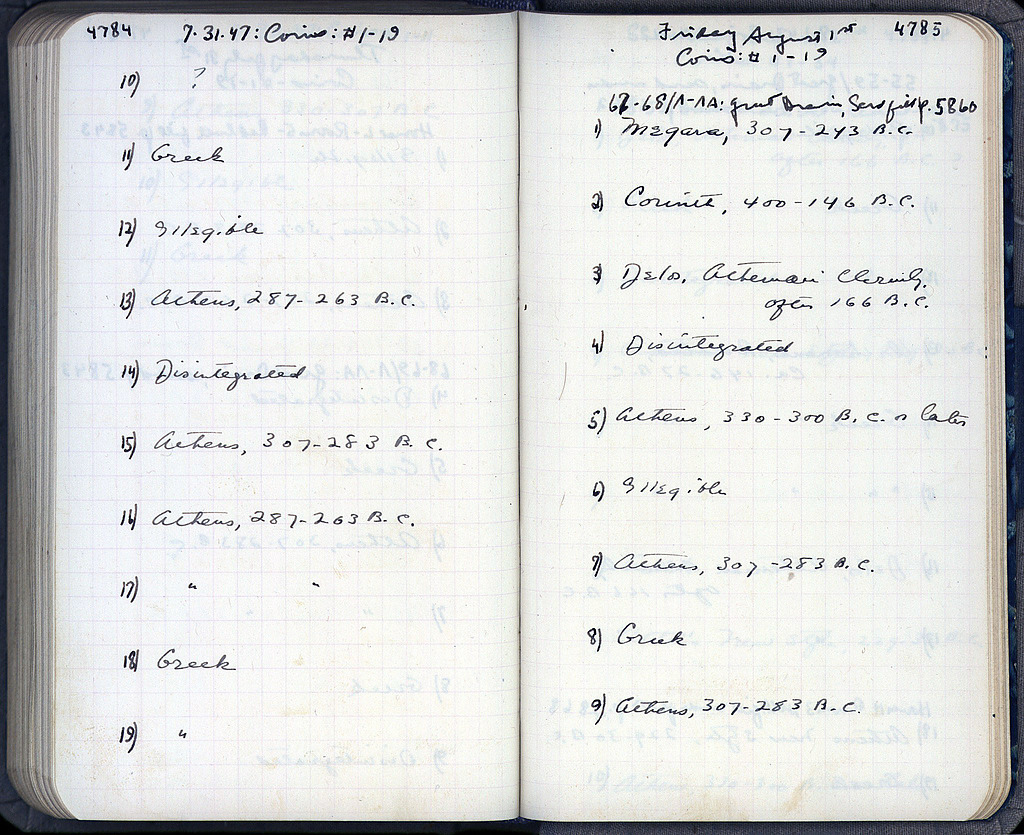 4784 7.31.47: Coins: #1-19
10) ?
11) Greek
12) Illegible
13) Athens, 287-263 B.C.
14) Disintegrated
15) Athens, 307-283 B.C.
16) Athens, 287-263 B.C.
17) " "
18) Greek
19) "
Friday August 1st 4785
Coins: # 1-19
67-68/Λ-ΛΑ: great Drain, Sand fill p. 5860
1) Megara, 307-243 B.C.
2) Corinth, 400-146 B.C.
3) Delos, Athenian Cleruchy,
after 166 B.C.
4) Disintegrated
5) Athens, 330-300 B.C. or later
6) Illegible
7) Athens, 307-283 B.C.
8) Greek
9) Athens, 307-283 B.C.